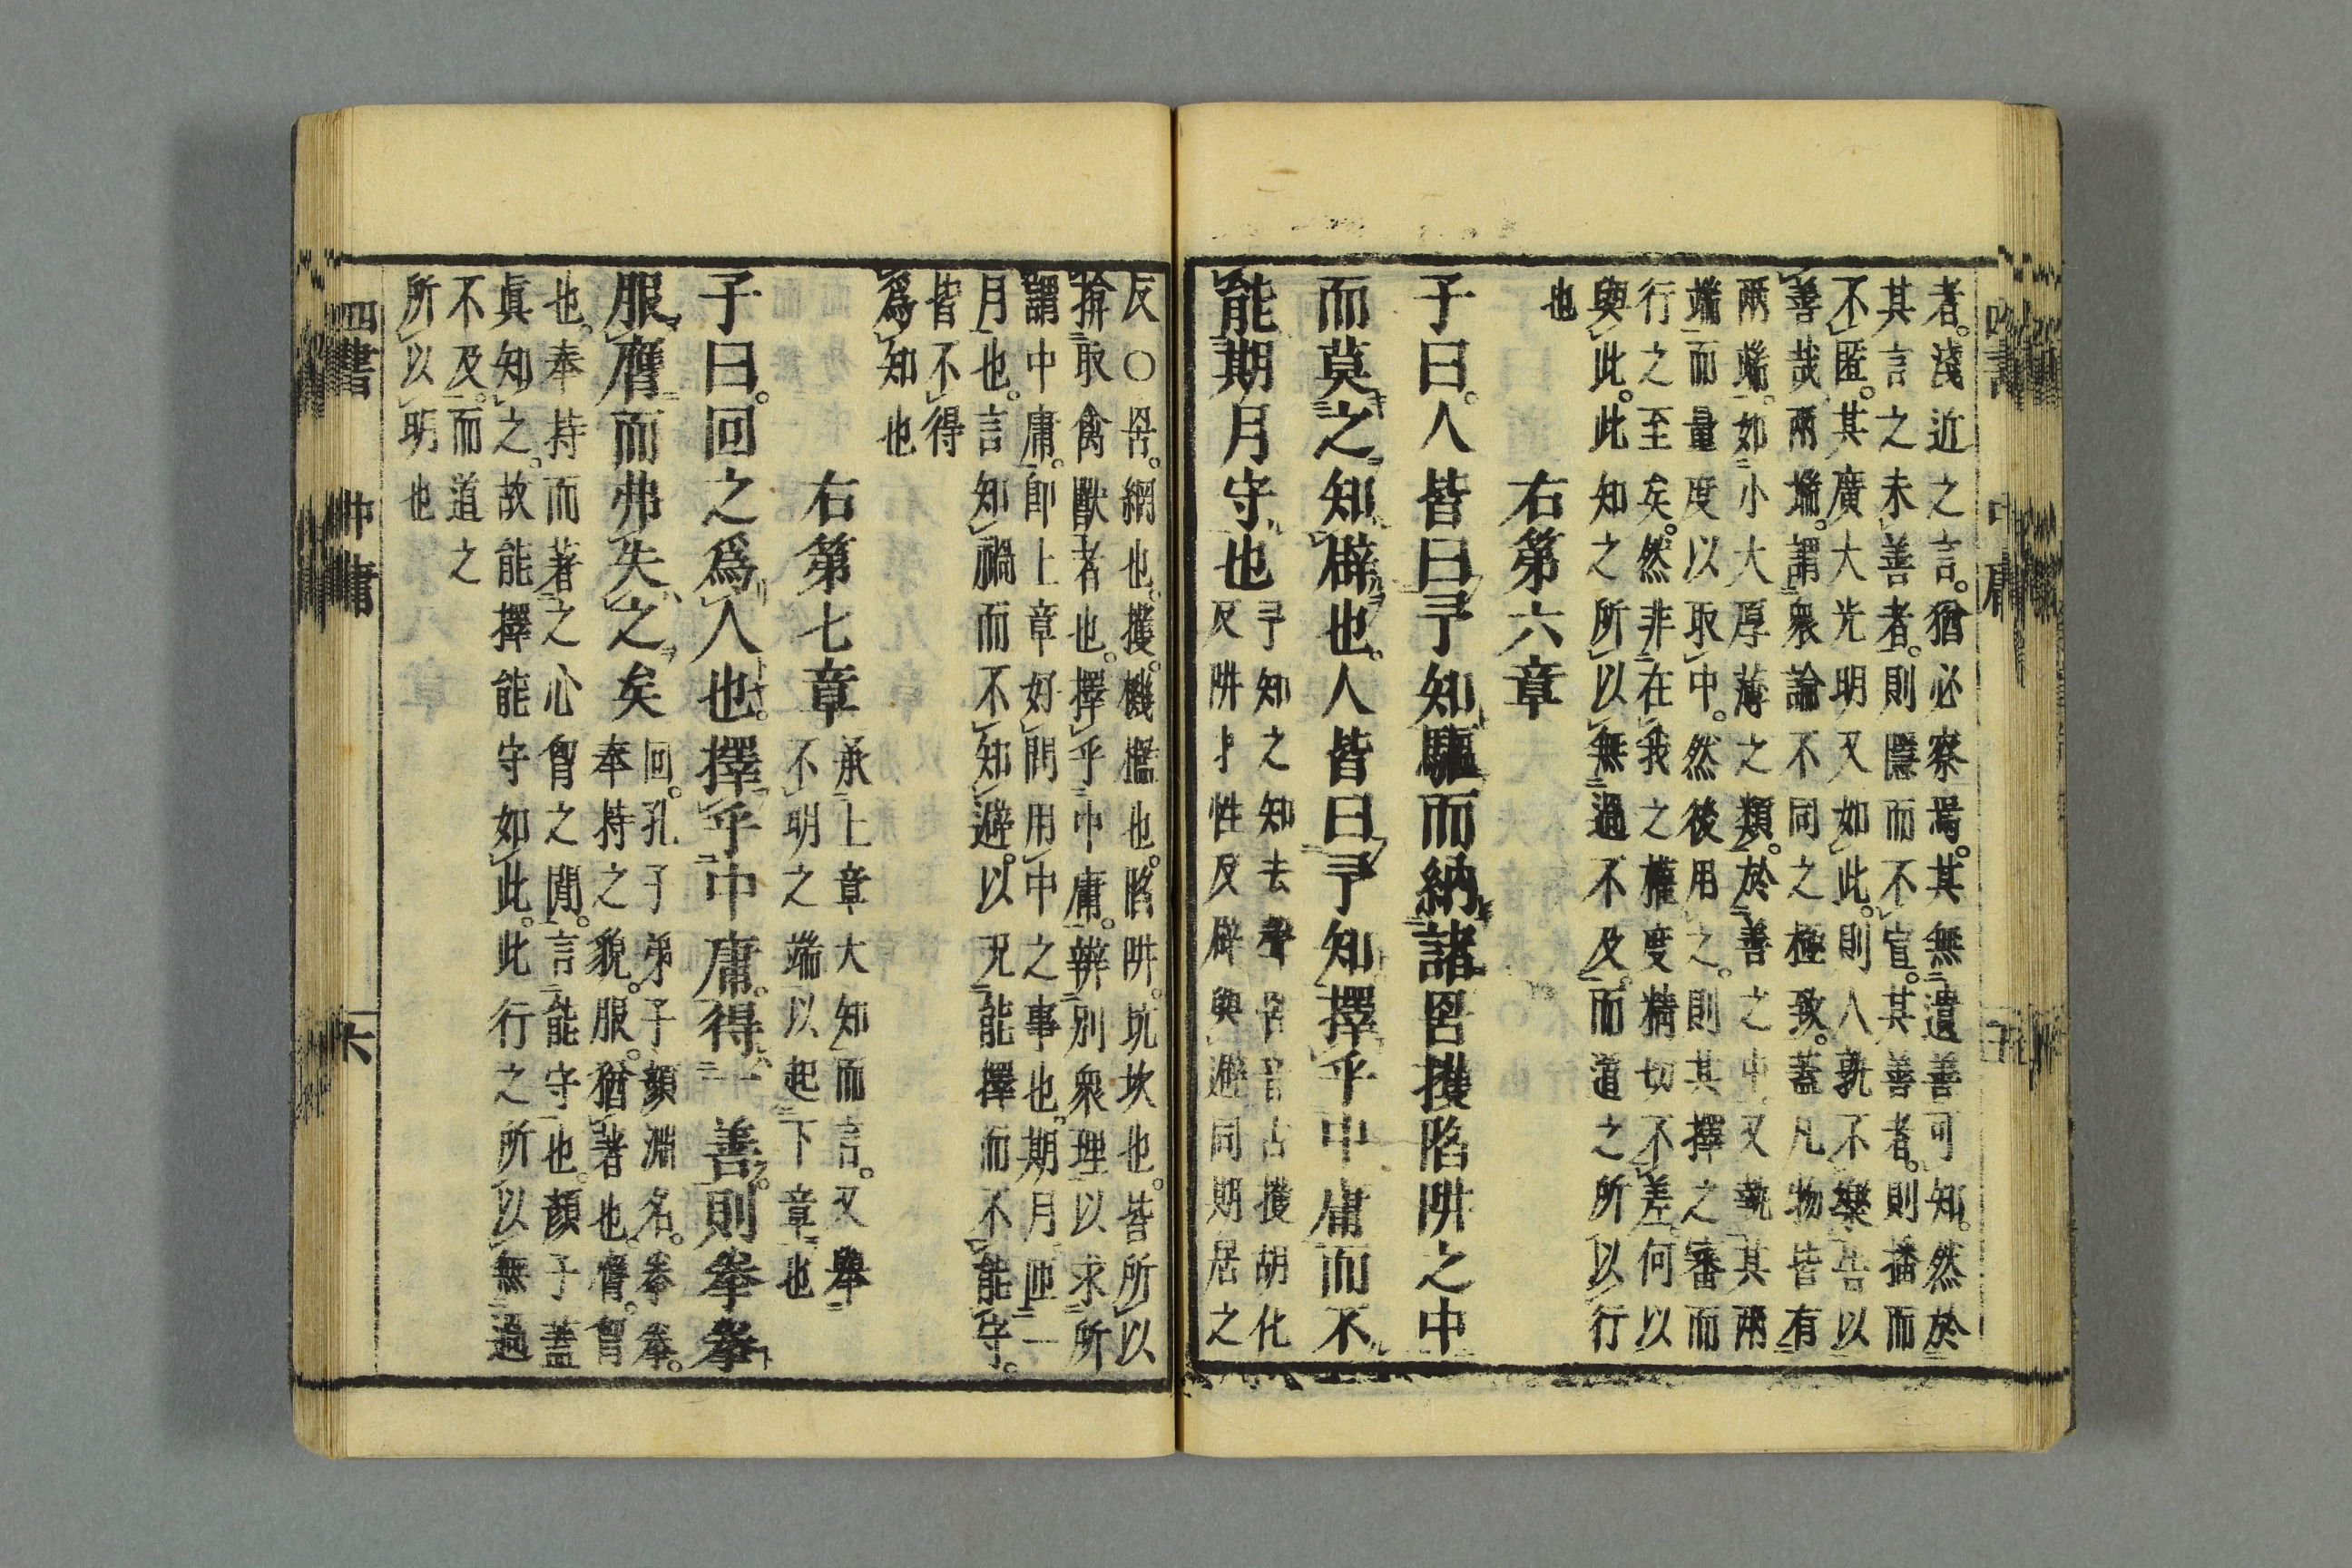 者。淺近之言。猶必察焉。其無遺善可知。然於
其言之未善者。則隱而不宣。其善者。則播而
不匿。其廣大光明又如此。則人孰不樂告以
善哉。兩端。謂衆論不同之極致。蓋凡物皆有
兩端。如小大厚薄之類。於善之中。又執其兩
端而量度以取中。然後用之。則其擇之審而
行之至矣。然非在我之權度精切不差。何以
與此。此知之所以無過不及。而道之所以行
也
右第六章
子曰。人皆曰予知驅而納諸罟擭陷阱之中
而莫之知辟也。人皆曰予知擇乎中庸而不
能期月守也
予知之知去聲罟音古擭胡化
反阱才性反辟與避同期居之
反○罟。網也。擭。機檻也。陷阱。坑坎也。皆所以
揜取禽獸者也。擇乎中庸。辨別衆理以求所
謂中庸。卽上章好問用中之事也。期月。匝一
月也。言知禍而不知避。以况能擇而不能守。
皆不得
爲知也
右第七章
承上章大知而言。又舉
不明之端以起下章也
子曰。回之爲人也。擇乎中庸。得一善。則拳拳
服膺而弗失之矣
回。孔子弟子顏淵名。拳拳。
奉持之貌。服。猶著也。膺。胷
也。奉持而著之心胷之閒。言能守也。顏子蓋
眞知之。故能擇能守如此。此行之所以無過
不及。而道之
所以明也
四書 中庸 六